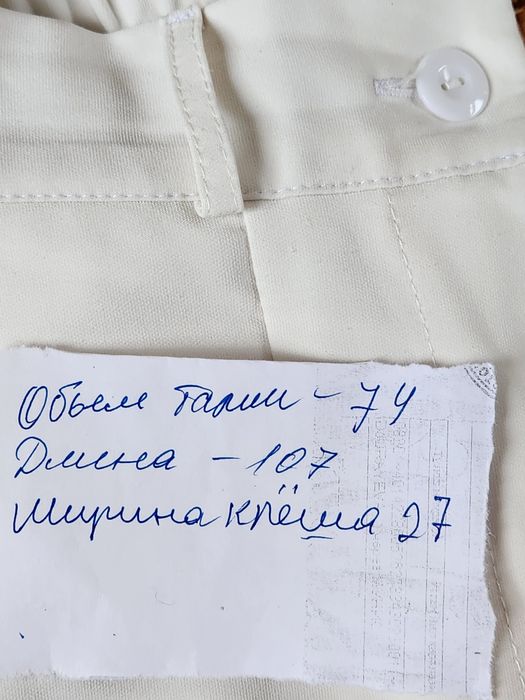 Объем талии - 74
Длина - 107
Ширина клёша 27